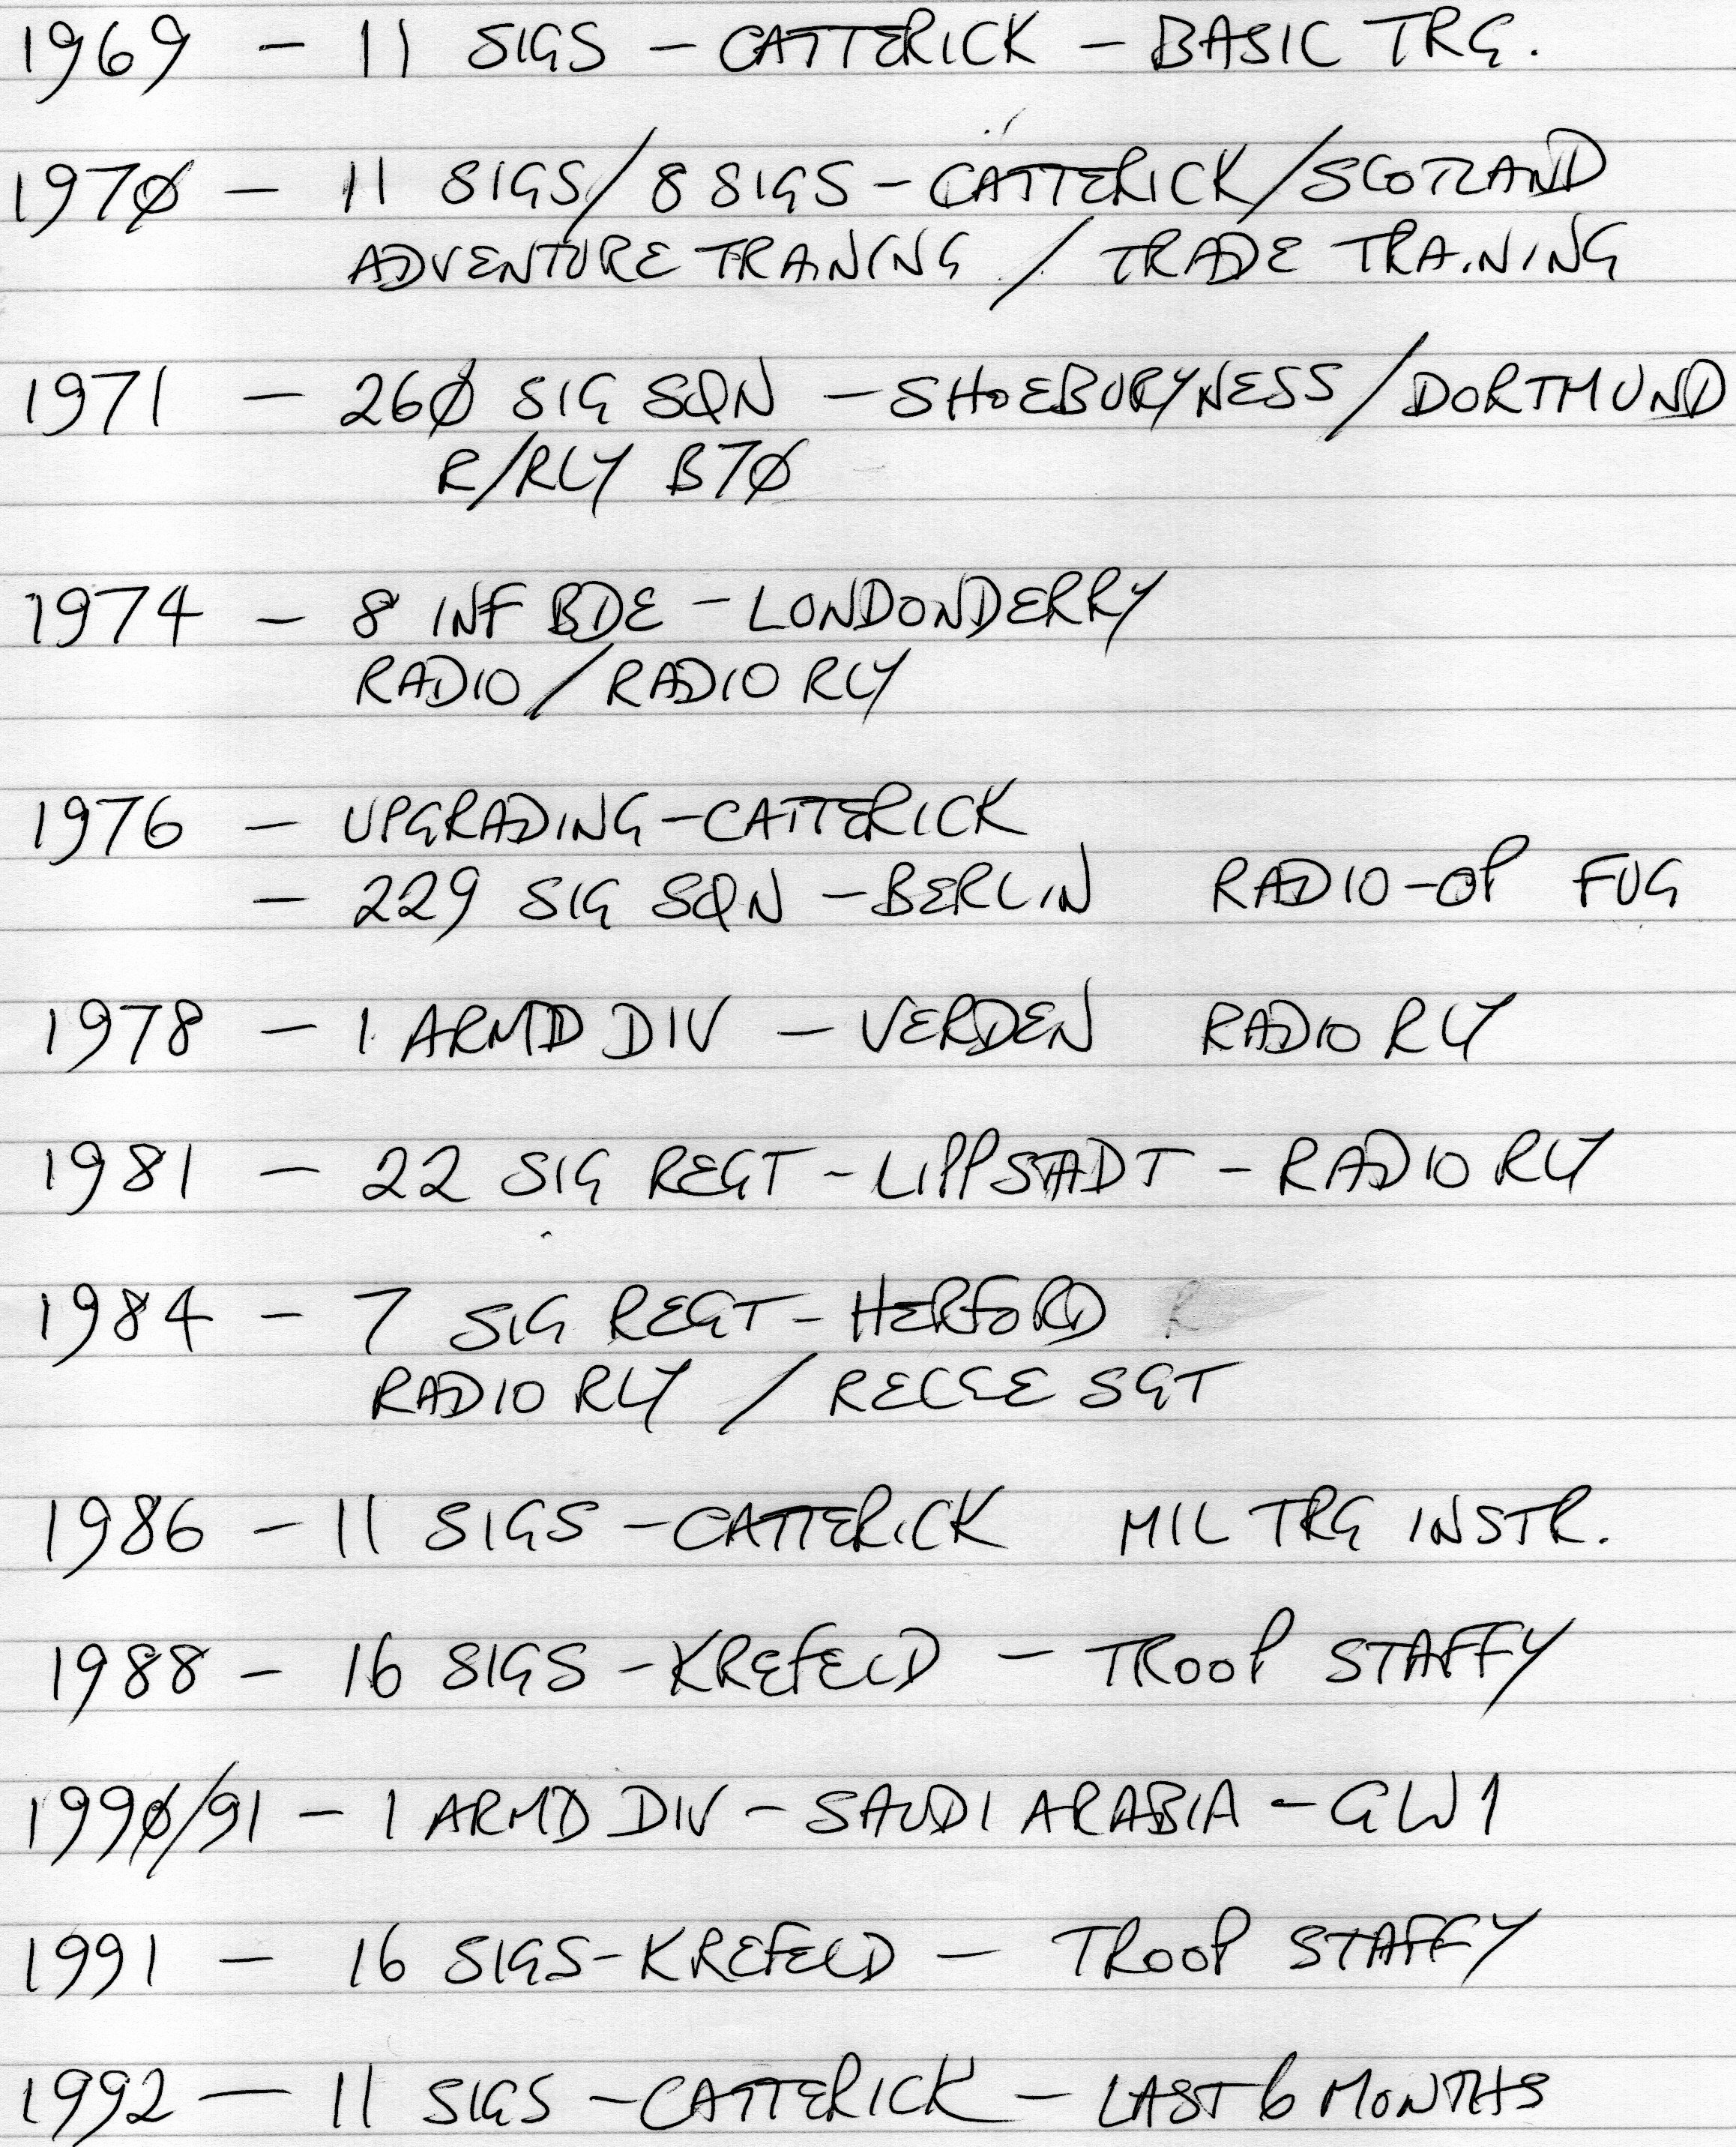 1969 - 11 SIGS - CATTERICK - BASIC TRG.
197Ø - 11 SIGS/8 SIGS - CATTERICK/SCOTLAND
ADVENTURE TRANING / TRADE TRAINING
1971 - 26Ø SIG SQN - SHOEBURYNESS/DORTMUND
R/RLY B7Ø
1974 - 8 INF BDE - LONDONDERRY
RADIO/RADIO RLY
1976 - UPGRADING - CATTERICK
- 229 SIG SQN - BERLIN RADIO-OP FUG
1978 - 1 ARMD DIV - VERDEN RADIO RLY
1981 - 22 SIG REGT - LIPPSTADT - RADIO RLY
1984 - 7 SIG REGT - HERFORD
RADIO RLY / RECCE SGT
1986 - 11 SIGS - CATTERICK MIL TRG INSTR.
1988 - 16 SIGS - KREFELD - TROOP STAFFY
199Ø/91 - 1 ARMD DIV - SAUDI ARABIA - GW1
1991 - 16 SIGS - KREFELD - TROOP STAFFY
1992 - 11 SIGS - CATTERICK - LAST 6 MONTHS